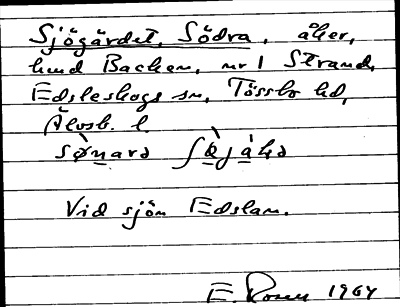 Sjögärdet, Södra, åker,
hmd Backen, nr 1 Strand,
Edsleskogs sn, Tössbo hd,
Älvsb. l.
Vid sjön Edslan.
E. 1964